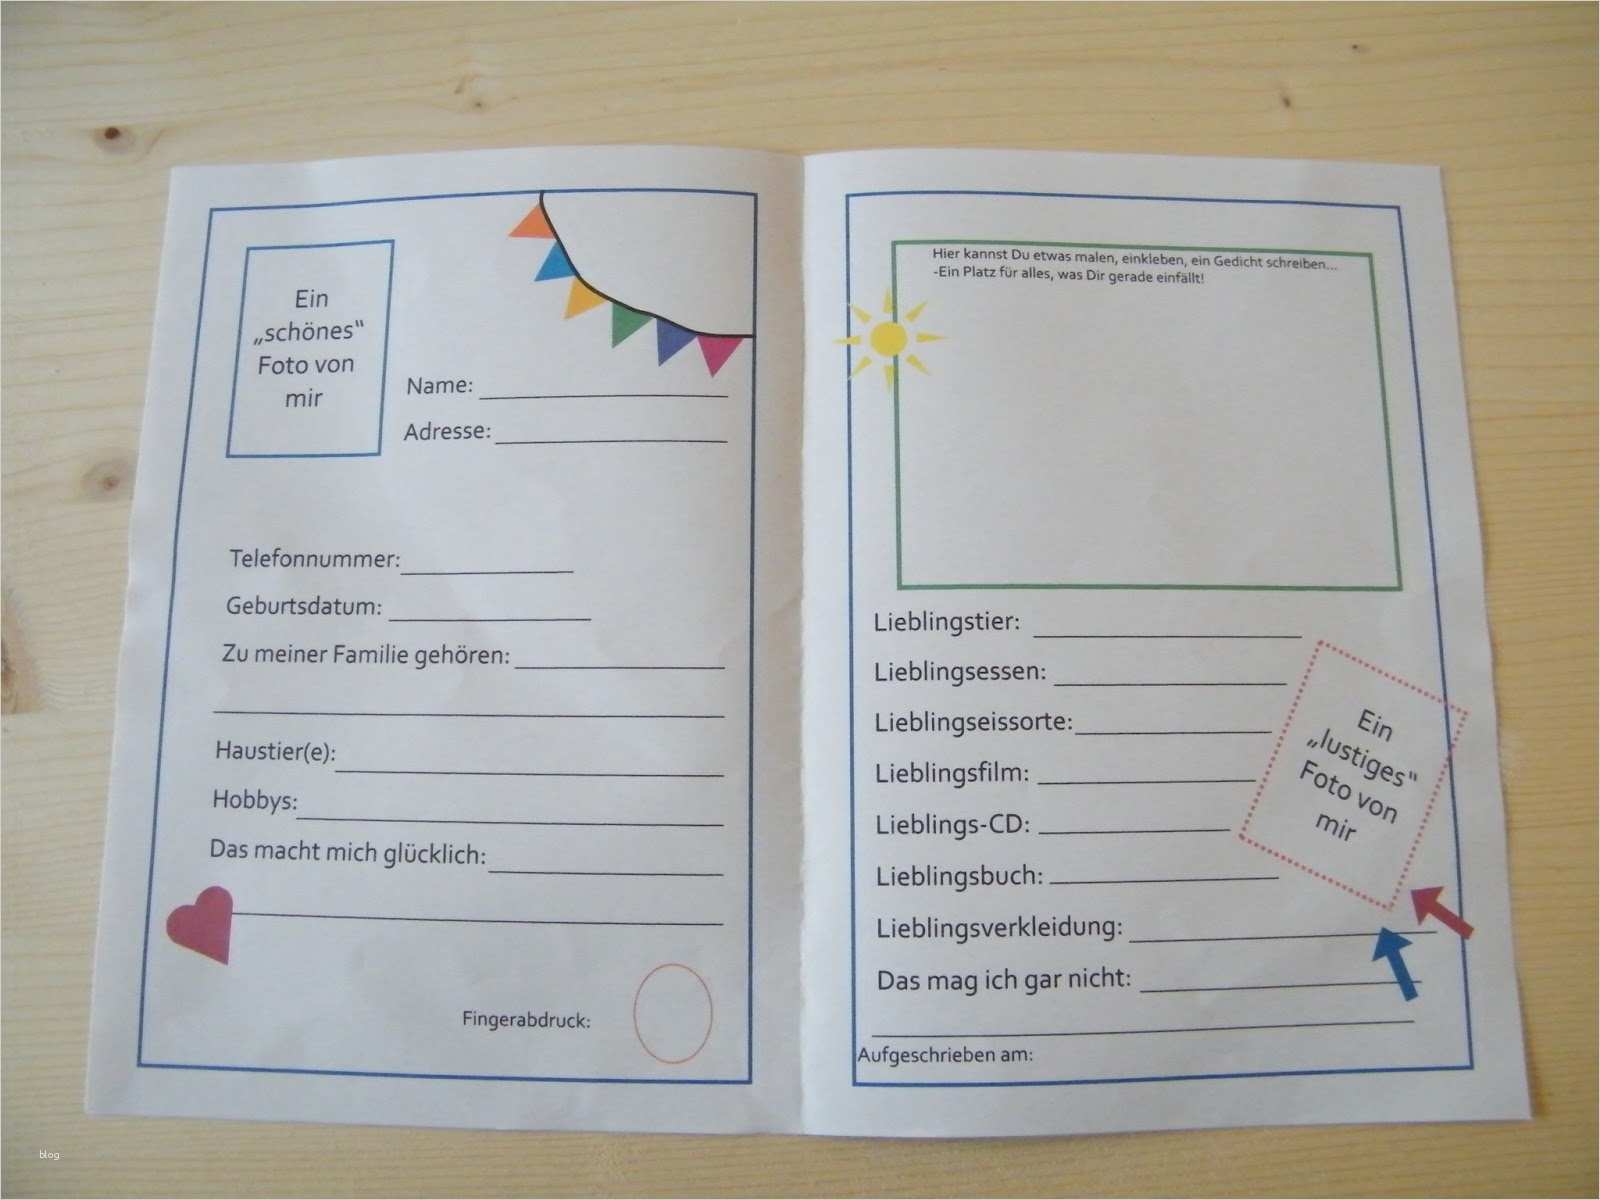 Ein
„schönes“
Foto von
mir
Name:
Adresse:
Telefonnummer:
Geburtsdatum:
Zu meiner Familie gehören:
Haustier(e):
Hobbys:
Das macht mich glücklich:
Fingerabdruck:
Hier kannst Du etwas malen, einkleben, ein Gedicht schreiben...
-Ein Platz für alles, was Dir gerade einfällt!
Lieblingstier:
Lieblingsessen:
Lieblingseissorte:
Lieblingsfilm:
Lieblings-CD:
Lieblingsbuch:
Lieblingsverkleidung:
Das mag ich gar nicht:
Aufgeschrieben am:
Ein
„lustiges“
Foto von
mir
blog